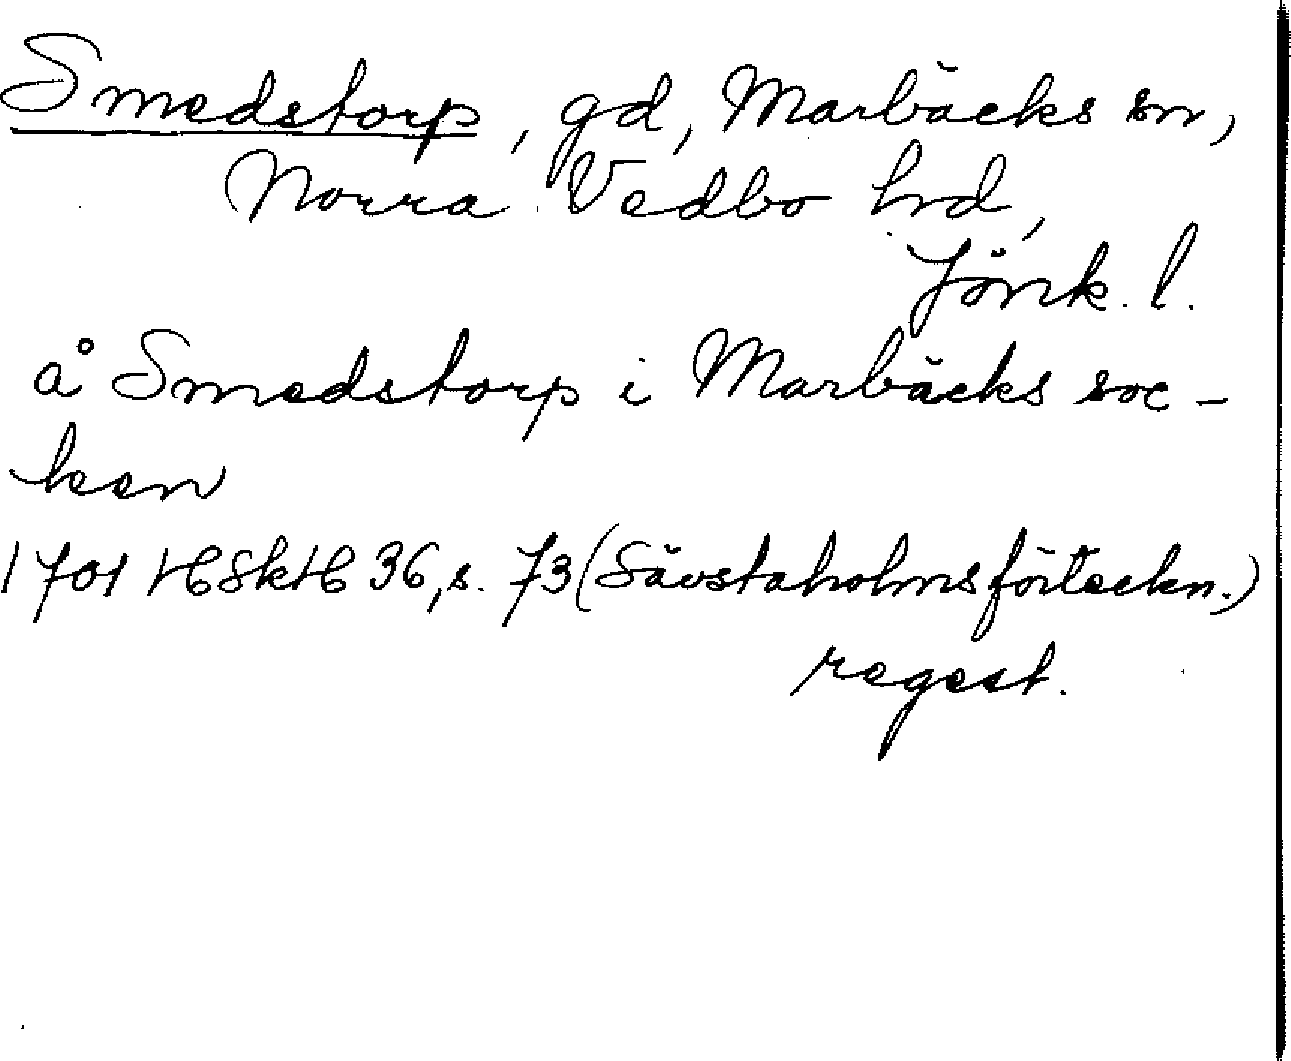 Smedstorp, gd, Marbäcks sn,
Norra Vedbo hd,
Jönk. l.
å Smedstorp i Marbäcks soc-
ken
1701 HSkH 36, s. 73 (Sävstaholmsförteckn.)
regest.